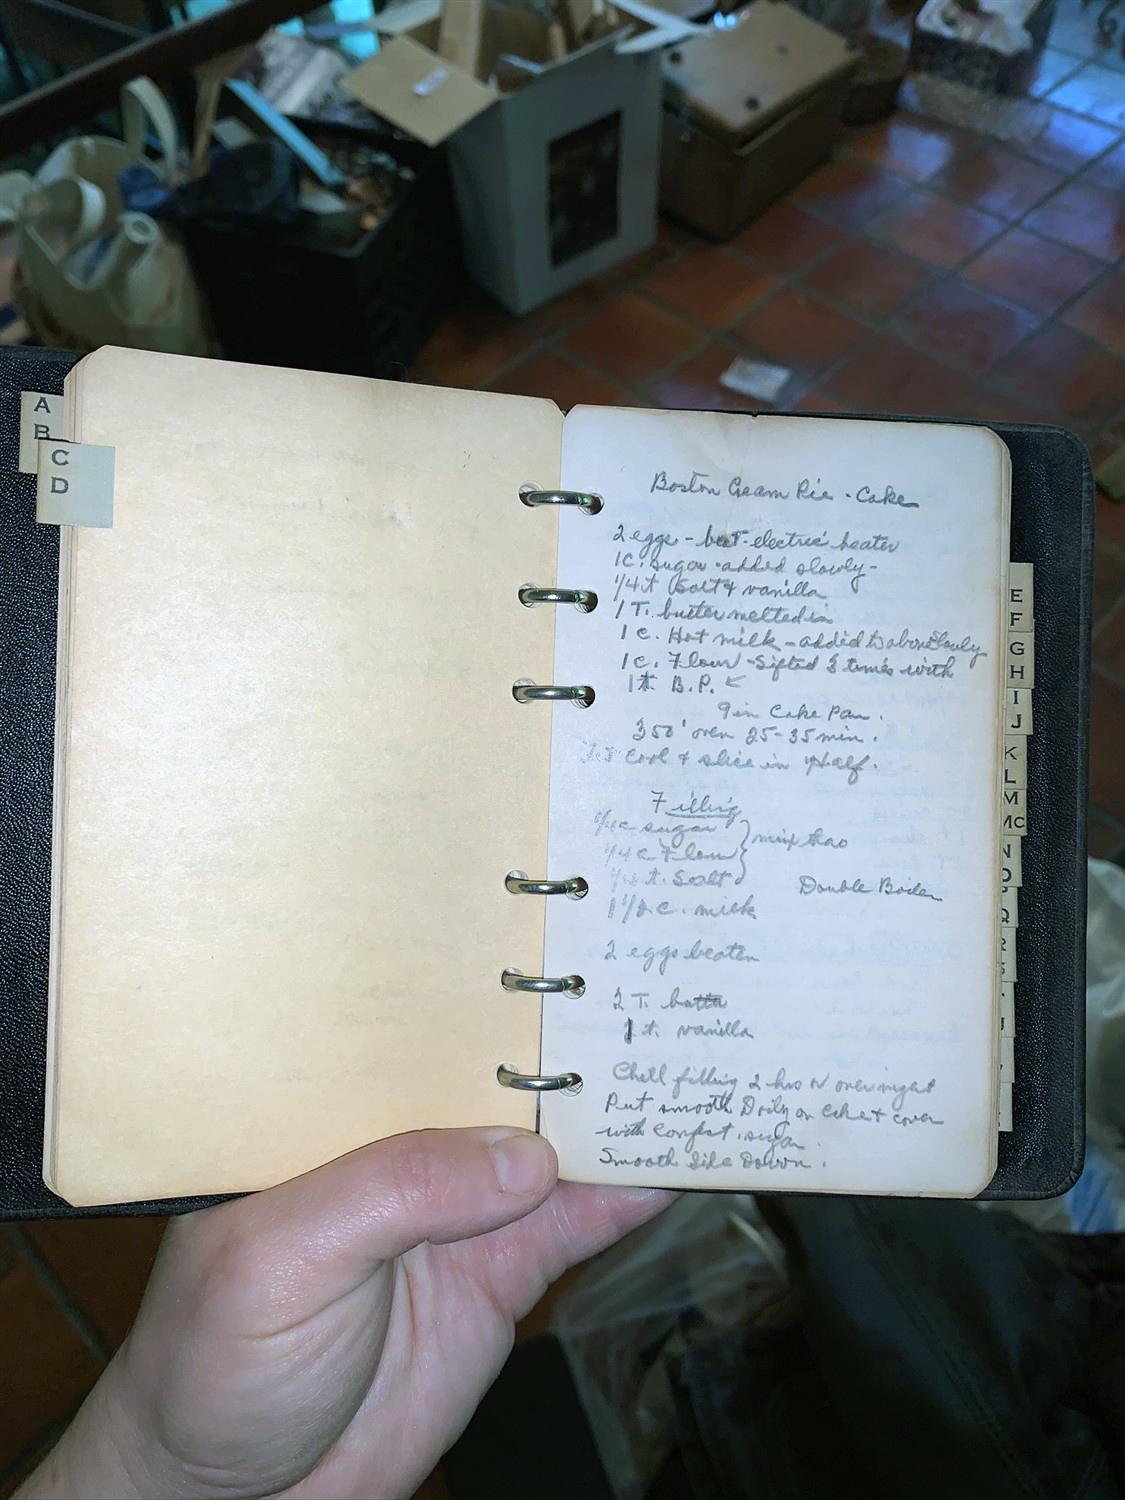 A
B
C
D
Boston Cream Pie - Cake
2 eggs - beat - electric beater
1 c. sugar - added slowly -
1/4 t salt & vanilla
1 T. butter melted in
1 c. Hot milk - added to above slowly
1 c. Flour - Sifted 3 times with
1 t. B.P.
9 in Cake Pan.
350° oven 25-35 min.
Let cool & slice in Half.
Filling
sugar
1/4 c Flour
t. Salt
mix thro
Double Boiler
1 1/2 c. milk
2 eggs beaten
2 T. butter
1 t. vanilla
Chill filling 2 hrs or overnight
Put smooth Doily on cake & cover
with Confect. sugar.
Smooth Side Down.
E
F
G
H
I
J
K
L
M
MC
N
O
P
Q
R
S